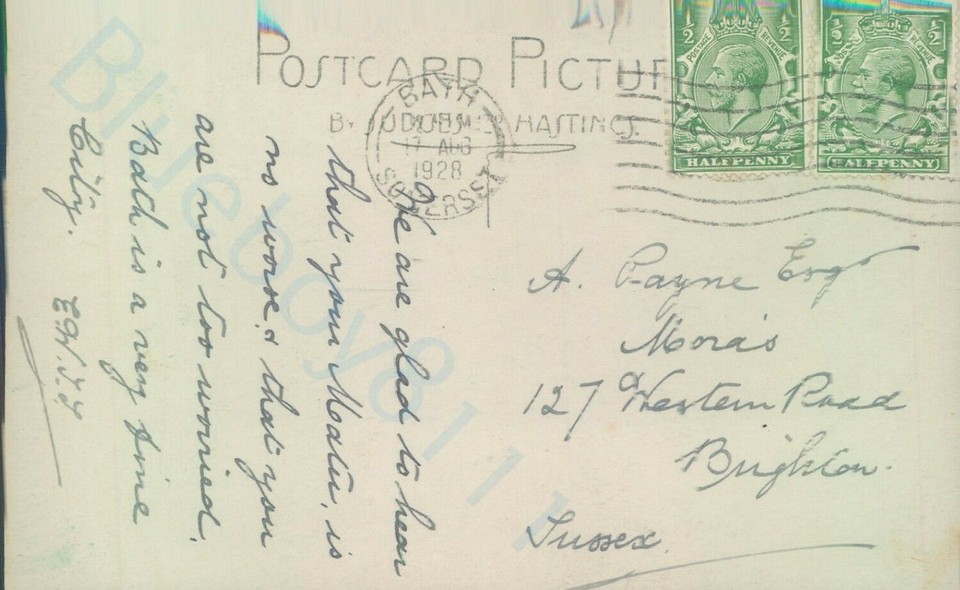 POSTCARD PICTU
BY JUDGES LD HASTINGS.
BATH
17 AUG
1928
SOMERSET
½ ½
POSTAGE REVENUE
HALFPENNY
½ ½
POSTAGE REVENUE
HALFPENNY
We are glad to hear
that your Mater, is
no worse, & that you
are not too worried.
Bath is a very fine
City.
A. Payne Esqr
Mora's
127 Western Road
Brighton.
Sussex.
Blueboy811